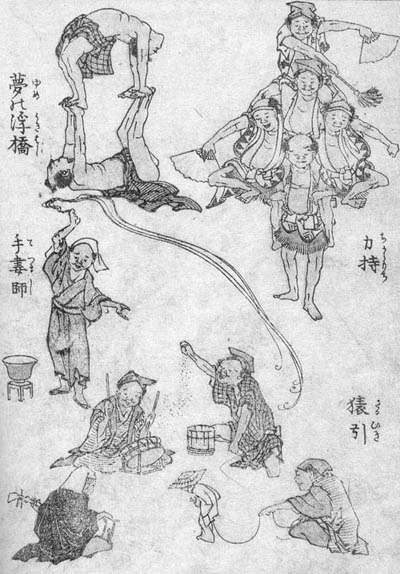 力持
ちからもち
夢の浮橋
ゆめ うきはし
手妻師
てつまし
猿引
さるひき